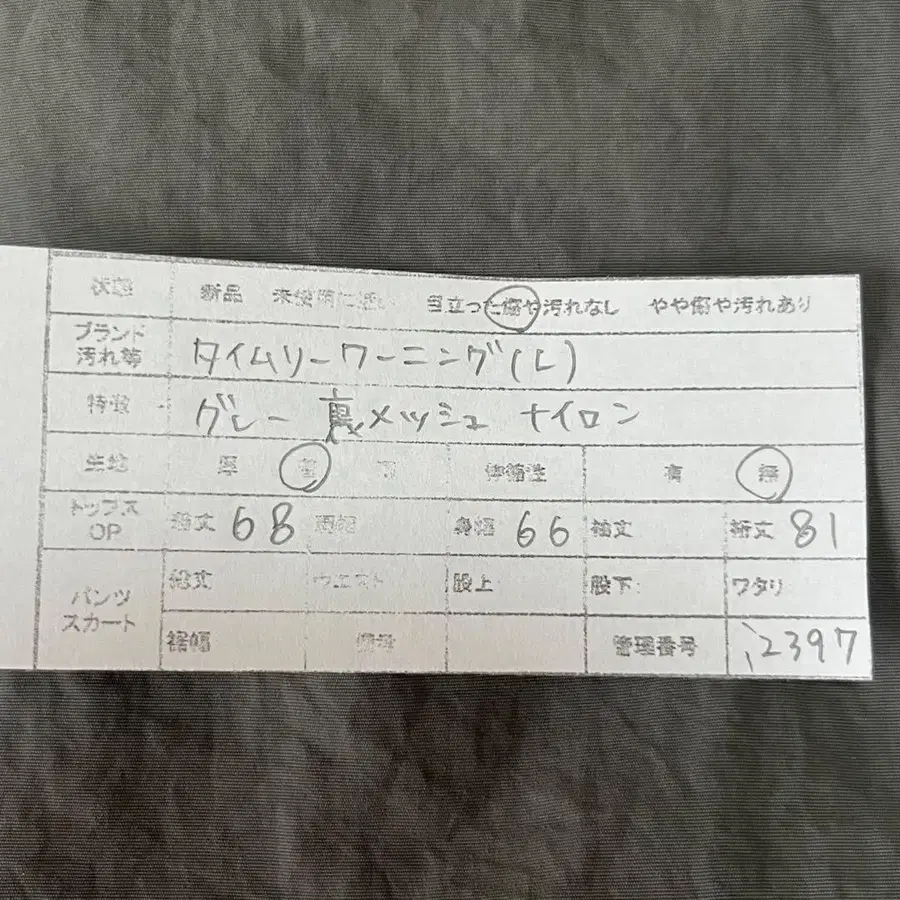 状態 新品 未使用に近い 目立った傷や汚れなし やや傷や汚れあり
ブランド
汚れ等 タイムリーワーニング(L)
特徴 グレー 裏メッシュ ナイロン
生地 厚 普 薄 伸縮性 有 無
トップス
OP 総丈 68 肩幅 身幅 66 袖丈 裄丈 81
パンツ
スカート 総丈 ウエスト 股上 股下 ワタリ
裾幅 備考 管理番号 い2397